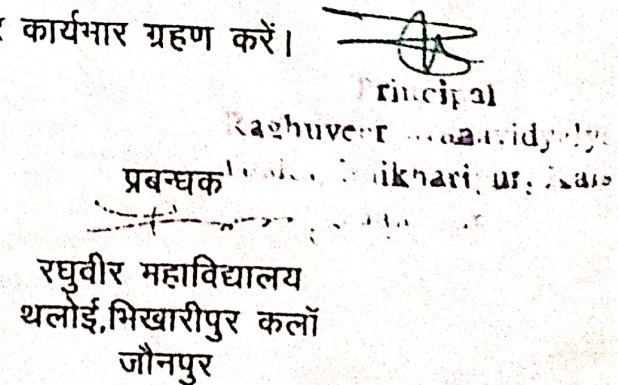 कार्यभार ग्रहण करें।
Principal
Raghuveer
प्रबन्धक
रघुवीर महाविद्यालय
थलोई,भिखारीपुर कलॉ
जौनपुर